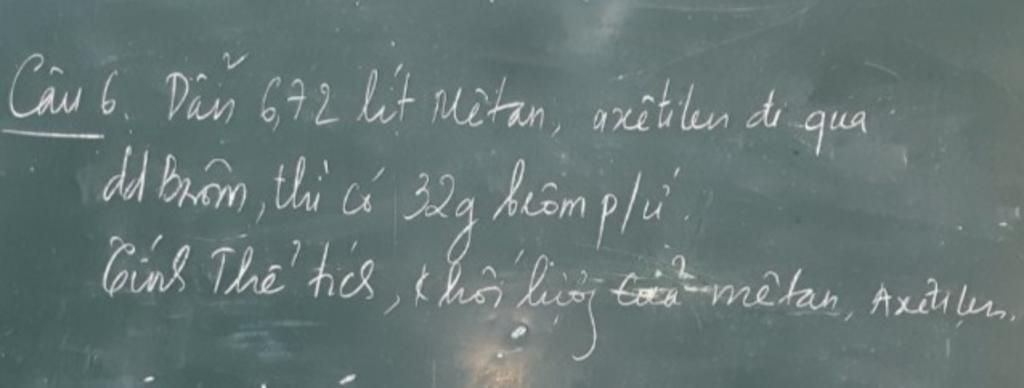 Câu 6. Dẫn 6,72 lít Mêtan, axêtilen đi qua
dd Brôm, thì có 32g brôm p/ứ.
Tính Thể tích, khối lượng của mêtan, Axêtilen.